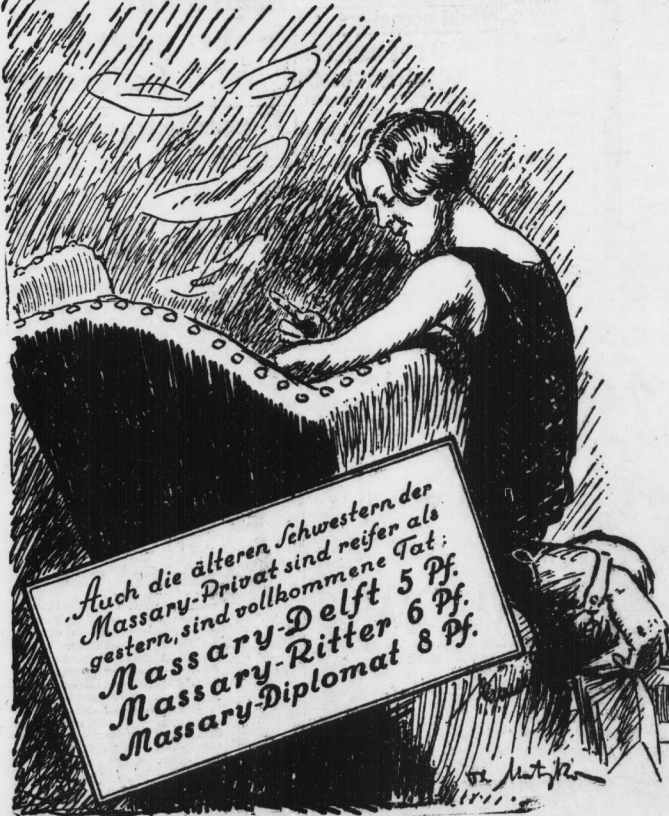 Auch die älteren Schwestern der
Massary-Privat sind reifer als
gestern, sind vollkommene Tat:
Massary-Delft 5 Pf.
Massary-Ritter 6 Pf.
Massary-Diplomat 8 Pf.